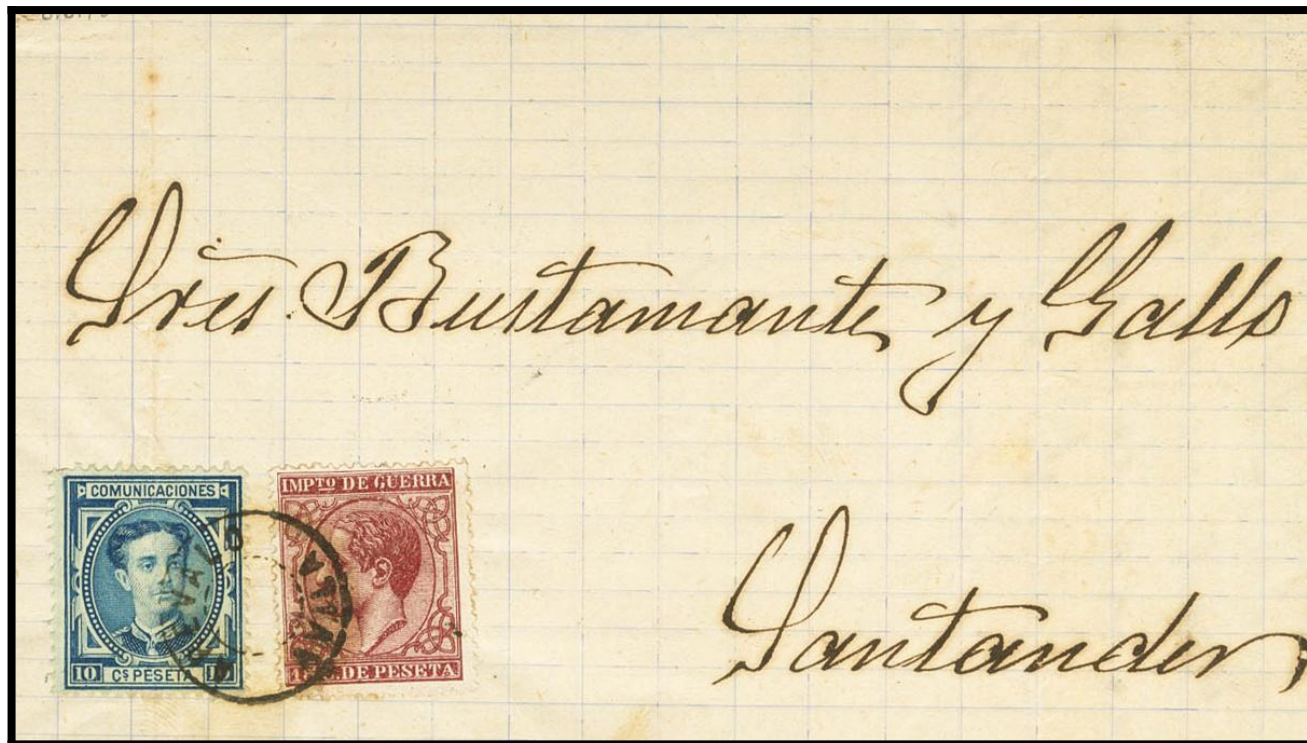 Sres. Bustamante y Gallo
Santander
COMUNICACIONES
10 Cs PESETA 10
IMPTO DE GUERRA
DE PESETA
AREVALO
AVILA